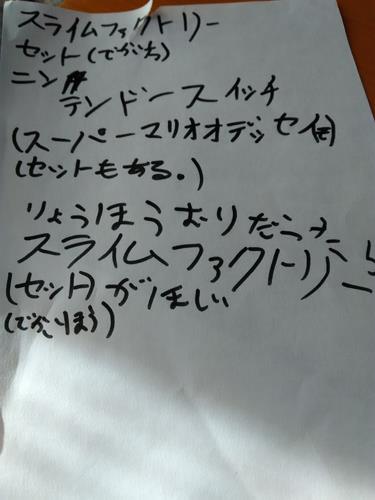 スライムファクトリー
セット(でかいち)
ニン
テンドースイッチ
(スーパーマリオオデッセイ
(セットもある。)
りょうほうむりだったら
スライムファクトリー
(セット)がほしい
(でかいほう)